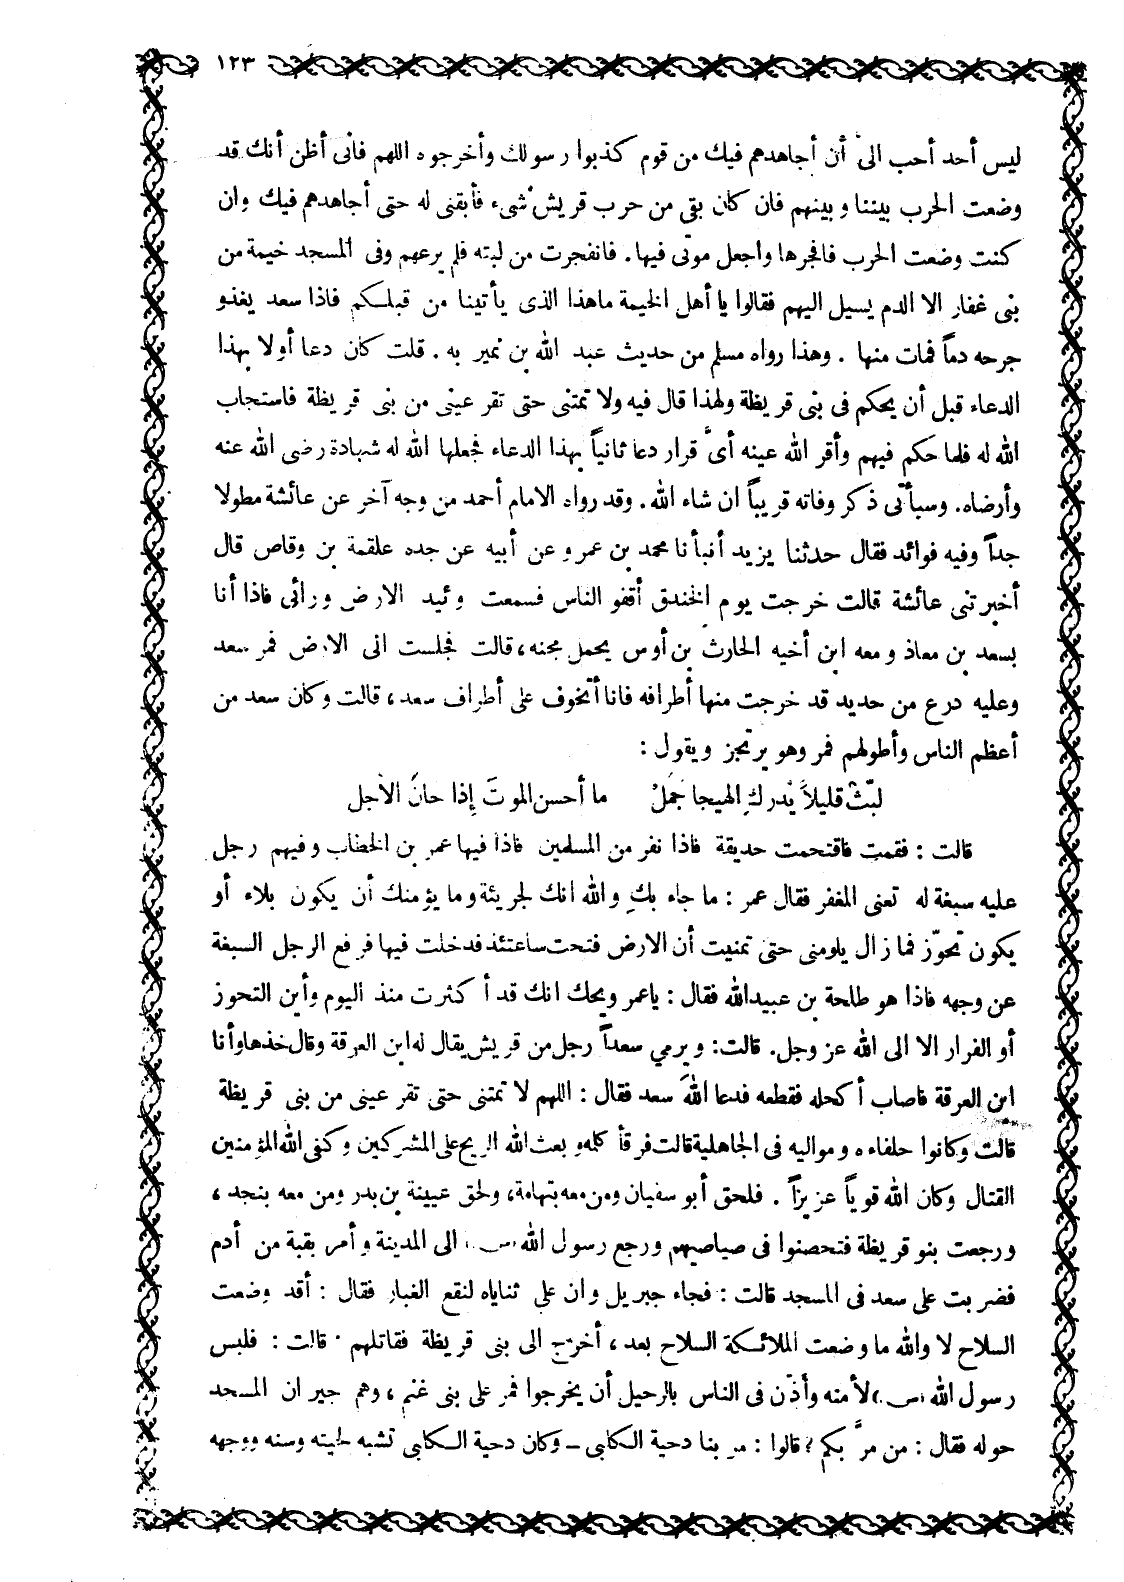 ١٢٣
ليس أحد أحب الىّ أن أجاهدهم فيك من قوم كذبوا رسولك وأخرجوه اللهم فانى أظن أنك قد
وضعت الحرب بيننا وبينهم فان كان بقي من حرب قريش شىء فأبقنى له حتى أجاهدهم فيك وان
كنت وضعت الحرب فافجرها واجعل موتى فيها . فانفجرت من لبته فلم يرعهم وفى المسجد خيمة من
بنى غفار الا الدم يسيل اليهم فقالوا يا أهل الخيمة ما هذا الذى يأتينا من قبلكم فاذا سعد يغذو
جرحه دماً فمات منها . وهذا رواه مسلم من حديث عبد الله بن نمير به . قلت كان دعا أولا بهذا
الدعاء قبل أن يحكم فى بنى قريظة ولهذا قال فيه ولا تمتنى حتى تقر عينى من بنى قريظة فاستجاب
الله له فلما حكم فيهم وأقر الله عينه أىَّ قرار دعا ثانياً بهذا الدعاء فجعلها الله له شهادة رضى الله عنه
وأرضاه . وسيأتى ذكر وفاته قريباً ان شاء الله . وقد رواه الامام أحمد من وجه آخر عن عائشة مطولا
جداً وفيه فوائد فقال حدثنا يزيد أنبأنا محمد بن عمرو عن أبيه عن جده علقمة بن وقاص قال
أخبرتنى عائشة قالت خرجت يوم الخندق أقفو الناس فسمعت وئيد الارض ورائى فاذا أنا
بسعد بن معاذ ومعه ابن أخيه الحارث بن أوس يحمل مجنه ، قالت فجلست الى الارض فمر سعد
وعليه درع من حديد قد خرجت منها أطرافه فانا أتخوف على أطراف سعد ، قالت وكان سعد من
أعظم الناس وأطولهم فمر وهو يرتجز ويقول :
لبّث قليلاً يُدركِ الهيجا جَملْ ما أحسن الموتَ إِذا حانَ الأجل
قالت : فقمت فاقتحمت حديقة فاذا نفر من المسلمين فاذا فيها عمر بن الخطاب وفيهم رجل
عليه سبغة له تعنى المغفر فقال عمر : ما جاء بكِ والله انك لجريئة وما يؤمنك أن يكون بلاء أو
يكون تحوّز فما زال يلومنى حتى تمنيت أن الارض فتحت ساعتئذ فدخلت فيها فرفع الرجل السبغة
عن وجهه فاذا هو طلحة بن عبيد الله فقال : يا عمر ويحك انك قد أكثرت منذ اليوم وأين التحوز
أو الفرار الا الى الله عز وجل . قالت : ويرمي سعداً رجل من قريش يقال له ابن العرقة وقال خذها وأنا
ابن العرقة فاصاب أكحله فقطعه فدعا اللهَ سعد فقال : اللهم لا تمتنى حتى تقر عينى من بنى قريظة
قالت وكانوا حلفاءه ومواليه فى الجاهلية قالت فرقأ كلمه وبعث الله الريح على المشركين وكفى الله المؤمنين
القتال وكان الله قوياً عزيزاً . فلحق أبو سفيان ومن معه بتهامة ، ولحق عيينة بن بدر ومن معه بنجد ،
ورجعت بنو قريظة فتحصنوا فى صياصيهم ورجع رسول الله (س) الى المدينة وأمر بقبة من أدم
فضربت على سعد فى المسجد قالت : فجاء جبريل وان على ثناياه لنقع الغبار فقال : أقد وضعت
السلاح لا والله ما وضعت الملائكة السلاح بعد ، أخرج الى بنى قريظة فقاتلهم . قالت : فلبس
رسول الله (س) لأمته وأذّن فى الناس بالرحيل أن يخرجوا فمر على بنى غنم ، وهم جيران المسجد
حوله فقال : من مرَّ بكم ؟ قالوا : مر بنا دحية الكلبى - وكان دحية الكلبى تشبه لحيته وسنه ووجهه